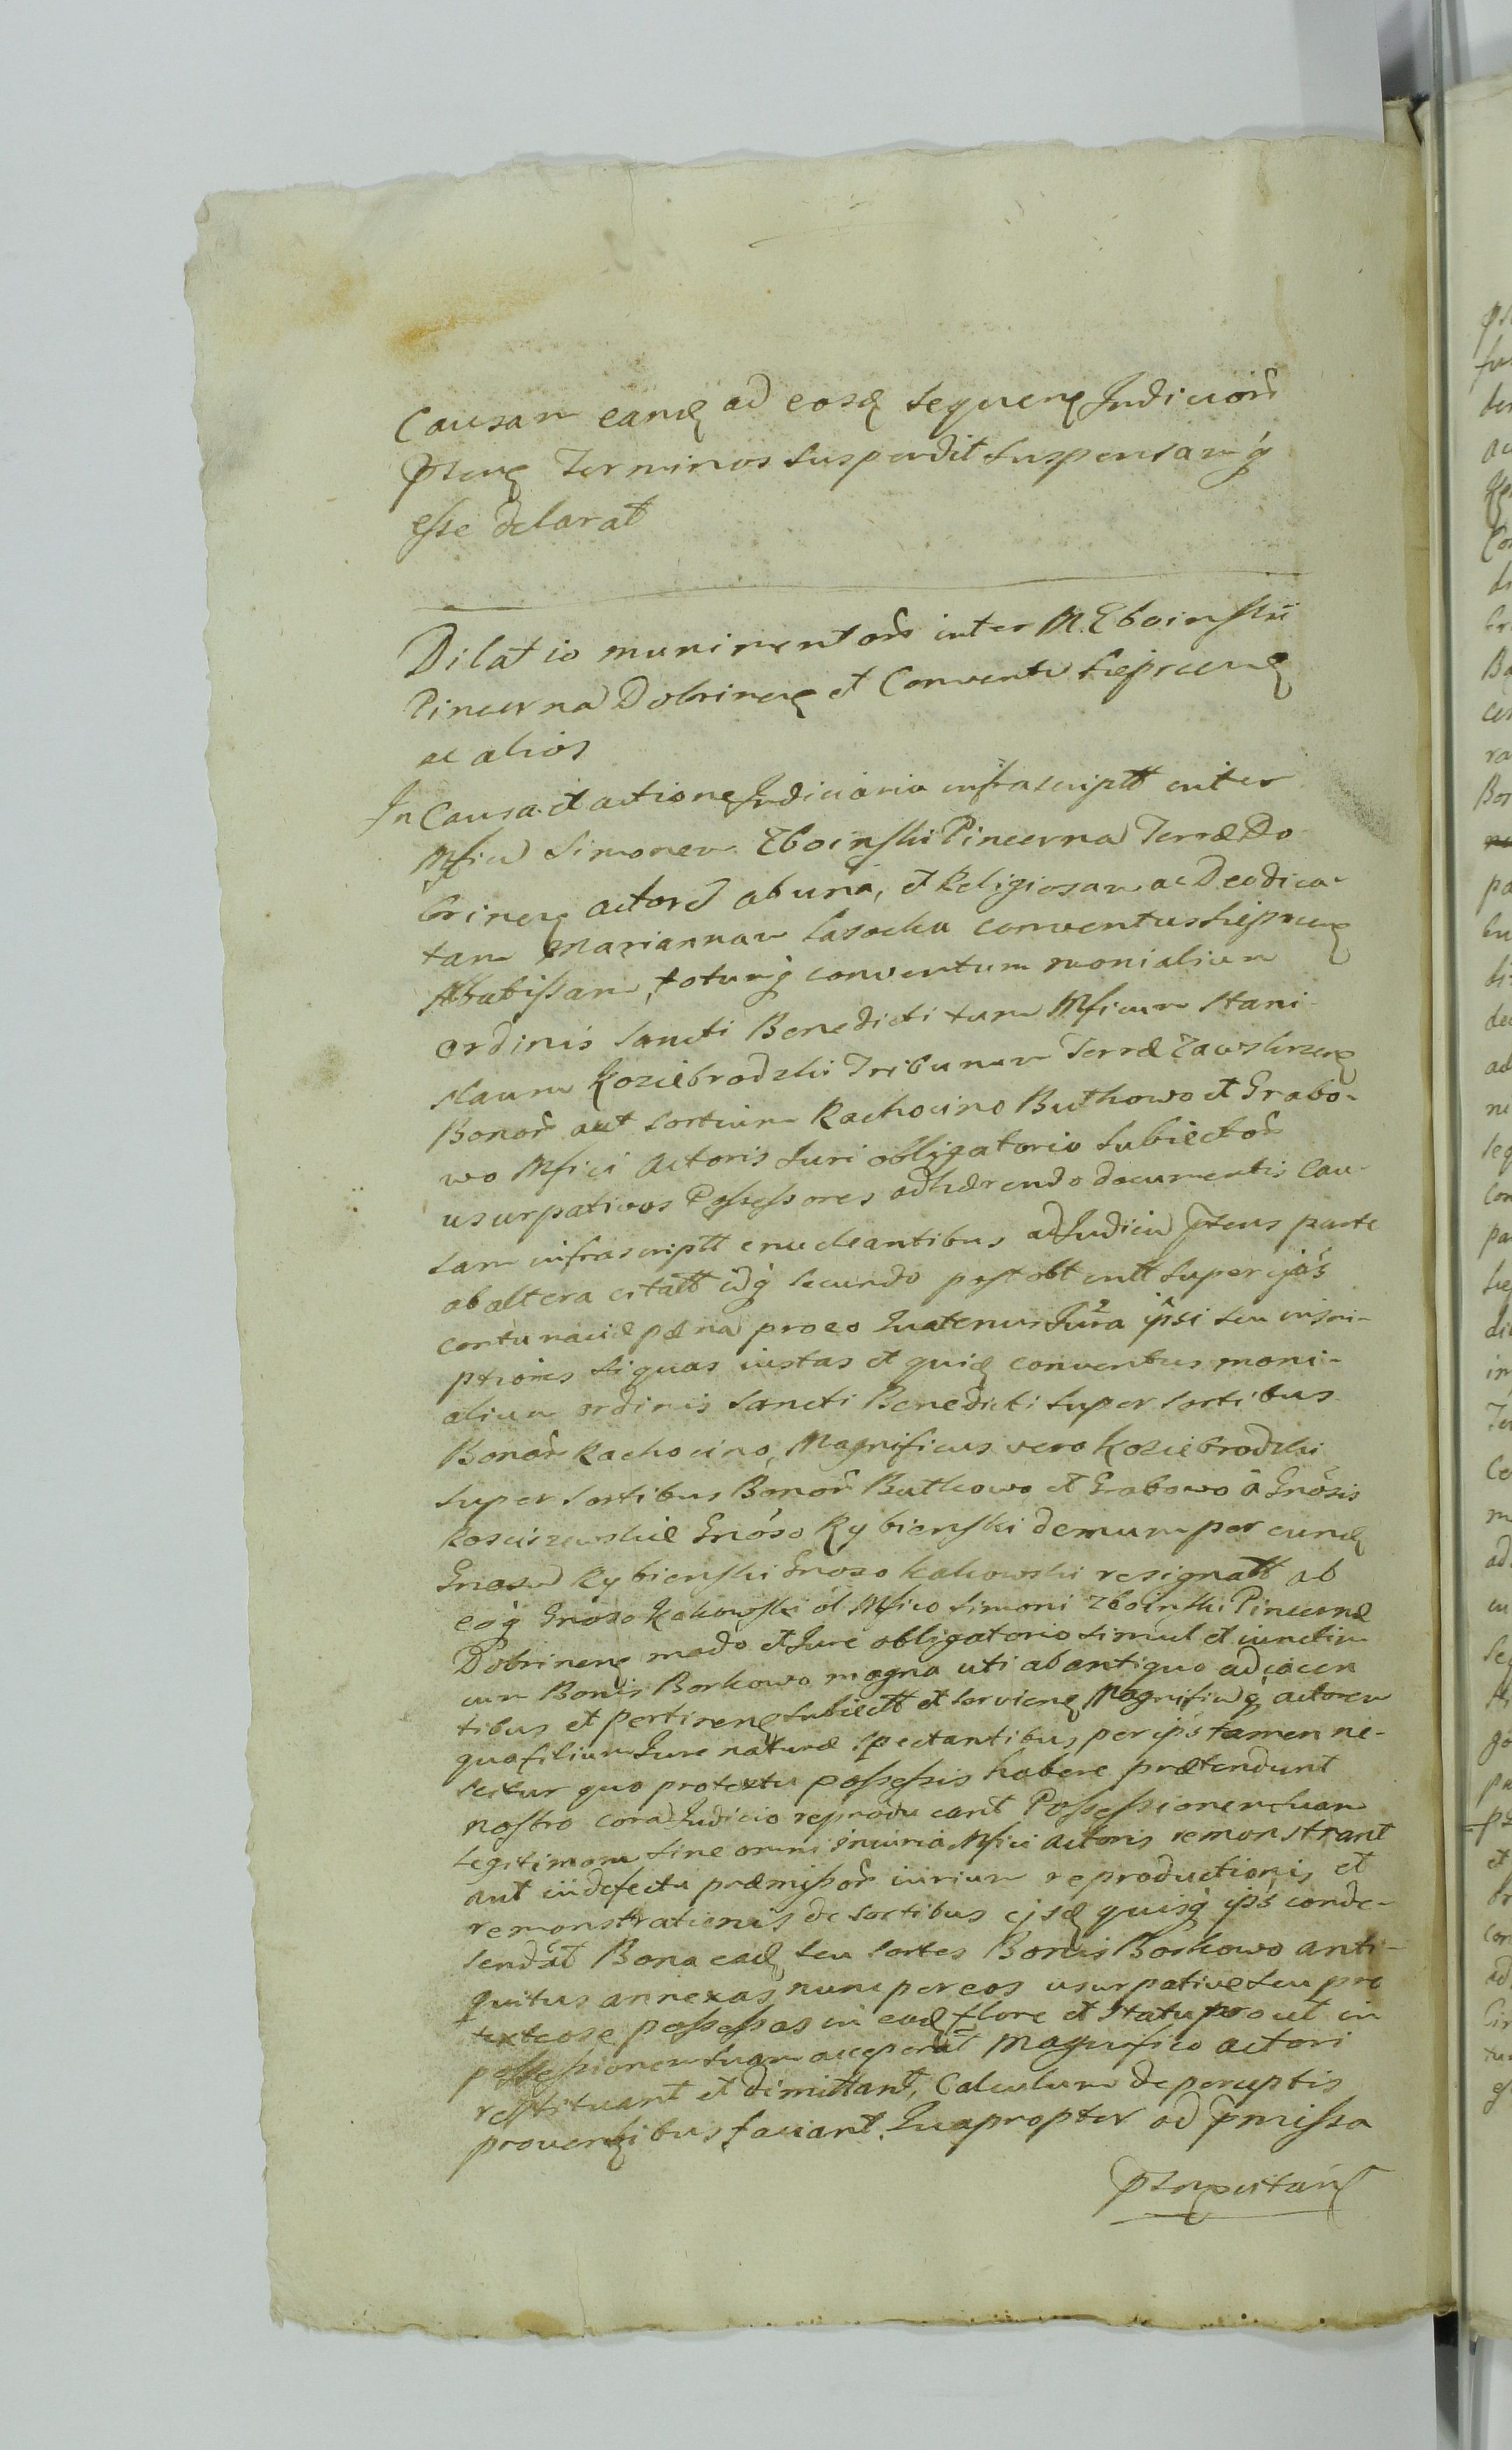 Causam eand ad eosd sequenq Judiciorũ
Pñtenq Terminos suspendit suspensamq́
eſse declarat
Dilatio munimentorũ inter M. Zboinſkii
Pincerna Dobrinenq et Conventũ Sieprcenq
ac alios
In Causa et actione Judiciaria infrascriptt inter
Mficũ Simonem Zboinſki Pincerna Terræ Do
brinenq actorẽ ab una, et Religiosam ac Deo dica-
tam Mariannam Lasocka conventus Sieprcenq
Abbatiſsam, totumq́ conventum monialium
ordinis Sancti Benedicti tum Mficum Stani-
slaum Koziebrodzki Tribunum Terræ Zawskrzenq
Bonorũ aut sortium Rachocino Buthowo et Grabo-
wo Mfici Actoris Juri obligatorio Subiectorũ
usurpativos Poſseſsores adhærendo documentis Cau-
sam infrascriptt enucleantibus ad Judiciũ Pñtens parte
ab altera citatt idq́ secundo post obtentt super ip̃os
contumaciæ pæna pro eo Quatenus Jura ip̃si seu inscri-
ptiones siquas iustas et quid conventus moni-
alium ordinis Sancti Benedicti super sortibus
Bonorũ Rachocino, Magnificus vero Koziebrodzki
super sortibus Bonorũ Buthowo et Grabowo â Gnõsis
Kosciszewskie Gnõso Rybienſki demum per eund
Gnosũ Rybienſki Gnoso Kakowski resignatt ab
eoq́ Gnõso Kakowſki ól Mfico Simoni Zboinſki Pincernæ
Dobrinenq modo et Jure obligatorio simul et iunctim
cum Bonis Borkowo magna uti ab antiquo adiacen
tibus et pertinenq subiectt et servienq Magnificũq́ actorem
qua filium Jure naturæ spectantibus, per ip̃s tamen ne-
scitur quo protextu poſseſsis habere prætendunt
nostro corã Judicio reproducant Poſseſsionem suam
legitimam sine omni iniuria Mfici actoris remonstrant
aut in defectu præmiſsorũ iurium reproductionis et
remonstrationis de sortibus ejsd quisq́ ip̃s conde-
sendãt Bona ead seu sortes Bonis Borkowo anti-
quitus annexas, nunc per eos usurpative seu pro
textose poſseſsas in eod flore et statu prout in
poſseſsionem suam acceperũt Magnifico actori
restituant et dimittant, Calculum de perceptis
provenqibus faciant. Quapropter ad pmiſsa